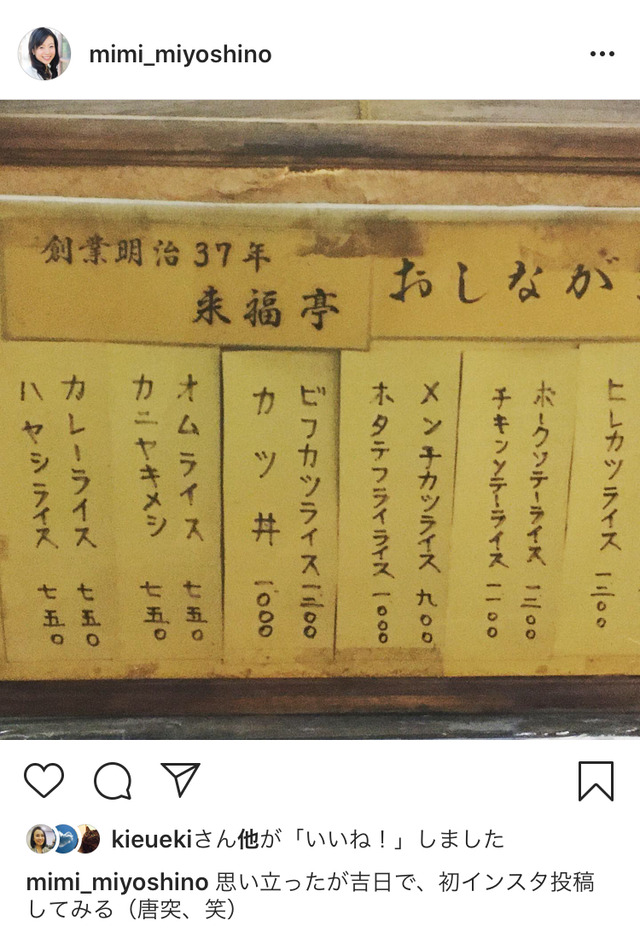 mimi_miyoshino
創業明治37年
来福亭
おしなが
ヒレカツライス
ポークソテーライス
チキンソテーライス 一一〇〇
メンチカツライス 九〇〇
ホタテフライライス 一〇〇〇
ビフカツライス
カツ丼 一〇〇〇
オムライス 七五〇
カニヤキメシ 七五〇
カレーライス 七五〇
ハヤシライス 七五〇
kieuekiさん他が「いいね！」しました
mimi_miyoshino 思い立ったが吉日で、初インスタ投稿
してみる（唐突、笑）